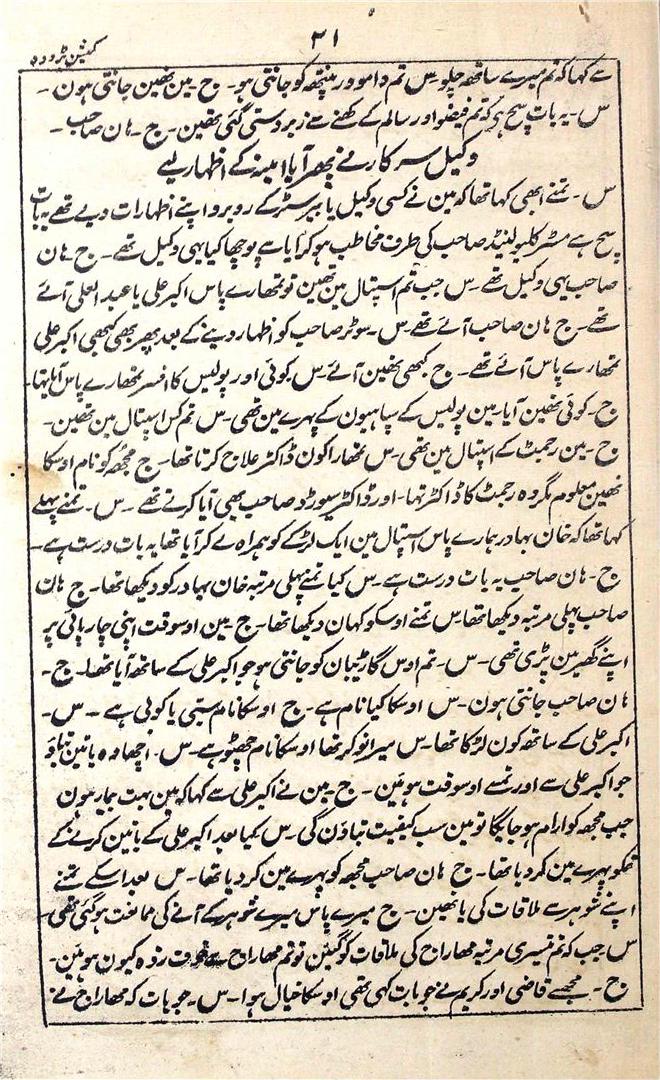 ۲۱
کمیشن بڑودہ
سے کہا کہ تم میرے ساتھ چلو۔ س تم دامودر پنتھ کو جانتی ہو۔ ج۔ مین نھین جانتی ہون۔
س۔ یہ بات سچ ہے کہ تم فیضو اور سالم کے کھنے سے زبردستی گئی تھین۔ ج۔ ہان صاحب۔
وکیل سرکار نے پھر آیا امینہ کے اظہار لیے
س۔ تمنے ابھی کہا تھا کہ مین نے کسی وکیل یا بیرسٹر کے روبرو اپنے اظہارات دیے تھے یہ بات
سچ ہے مسٹر کلیولینڈ صاحب کی طرف مخاطب ہوکر آیا سے پوچھا کیا یہی وکیل تھے۔ ج ہان
صاحب یہی وکیل تھے۔ س جب تم اسپتال مین تھین تو تمھارے پاس اکبر علی یا عبد العلی آئے
تھے۔ ج ہان صاحب آئے تھے۔ س۔ سوٹر صاحب کو اظہار دینے کے بعد پھر بھی کبھی اکبر علی
تمھارے پاس آئے تھے۔ ج کبھی نھین آئے۔ س کوئی اور پولیس کا افسر تمھارے پاس آیا تہا۔
ج۔ کوئی نھین آیا۔ مین پولیس کے سپاہیون کے پہرے مین تھی۔ س تم کس اسپتال مین تھین۔
ج۔ مین رجمٹ کے اسپتال مین تھی۔ س تمھارا کون ڈاکٹر علاج کرتا تھا۔ ج مجھ کو نام اوسکا
نھین معلوم مگر وہ رجمٹ کا ڈاکٹر تہا۔ اور ڈاکٹر سیورڈ صاحب بھی آیا کرتے تھے۔ س۔ تمنے پہلے
کہا تھا کہ خان بہادر ہمارے پاس اسپتال مین ایک لڑکے کو ہمراہ لے کر آیا تھا یہ بات درست ہے۔
ج۔ ہان صاحب یہ بات درست ہے۔ س کیا تمنے پہلی مرتبہ خان بہادر کو دیکھا تھا۔ ج ہان
صاحب پہلی مرتبہ دیکھا تھا۔ س تمنے اوسکو کہان دیکھا تھا۔ ج۔ مین اوسوقت اپنی چارپائی پر
اپنے گھر مین پڑی تھی۔ س۔ تم اوس گاڑیبان کو جانتی ہو جو اکبر علی کے ساتھ آیا تھا۔ ج۔
ہان صاحب جانتی ہون۔ س اوسکا کیا نام ہے۔ ج اوسکا نام ستبی یا کوئی ہے۔ س۔
اکبر علی کے ساتھ کون لڑکا تھا۔ س میرا نوکر تھا اوسکا نام چھٹو ہے۔ س۔ اچھا وہ باتین بتاؤ
جو اکبر علی سے اور تمسے اوسوقت ہوئین۔ ج۔ مین نے اکبر علی سے کہا کہ مین بہت بیمار ہون
جب مجھ کو ارام ہو جائیگا تو مین سب کیفیت بتاؤن گی۔ س کیا بعد اکبر علی کے باتین کرنے کے
تمکو پہرے مین کردیا تھا۔ ج ہان صاحب مجھ کو پہرے مین کردیا تھا۔ س بعد اسکے تمنے
اپنے شوہر سے ملاقات کی یا نھین۔ ج میرے پاس میرے شوہر کے آنے کی ممانعت ہو گئی تھی۔
س جب کہ تم تیسری مرتبہ مھاراج کی ملاقات کو گئین تو تم مھاراج سے خوف زدہ کیون ہوئین۔
ج۔ مجھسے قاضی اور کریم نے جو بات کہی تھی اوسکا خیال ہوا۔ س۔ جو بات کہ مھاراج نے